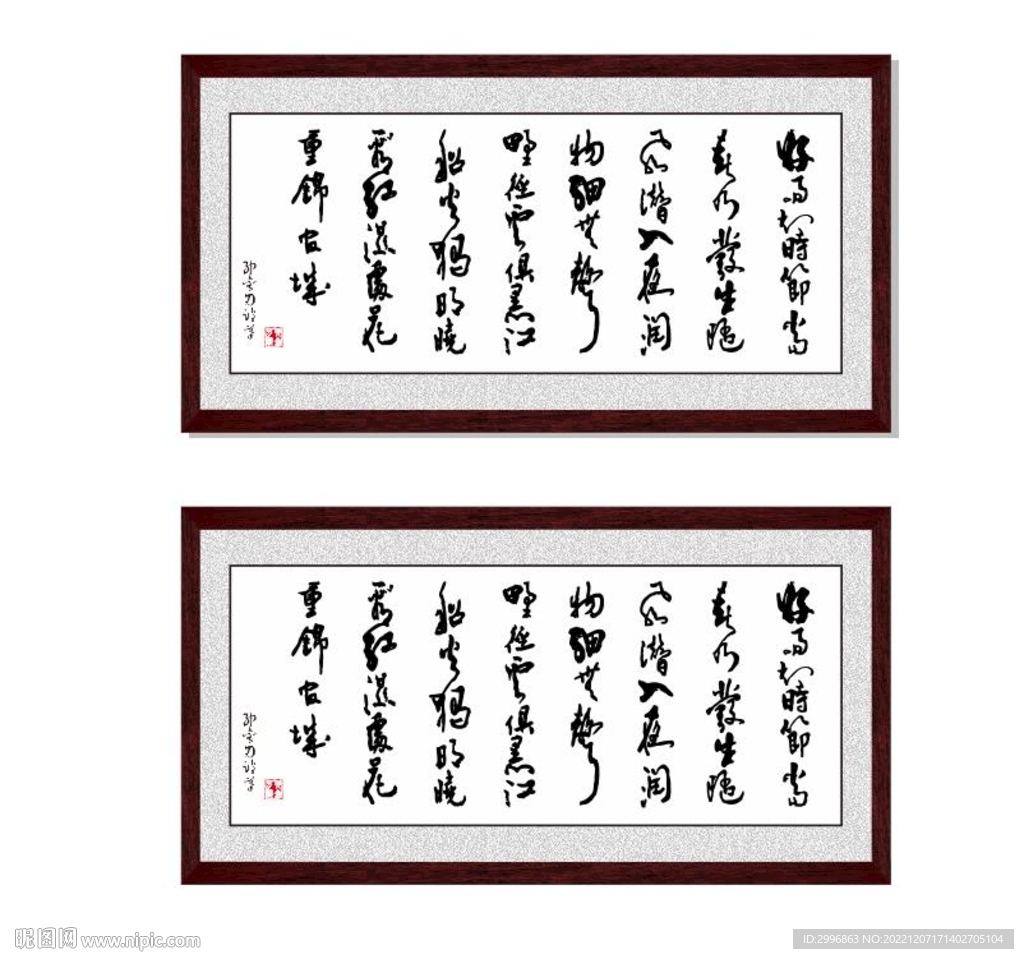 好雨知時節當
春乃發生隨
風潛入夜潤
物細無聲
野徑雲俱黑江
船火獨明曉
看紅濕處花
重錦官城
好雨知時節當
春乃發生隨
風潛入夜潤
物細無聲
野徑雲俱黑江
船火獨明曉
看紅濕處花
重錦官城
昵图网 www.nipic.com
ID:2996863 NO:20221207171402705104